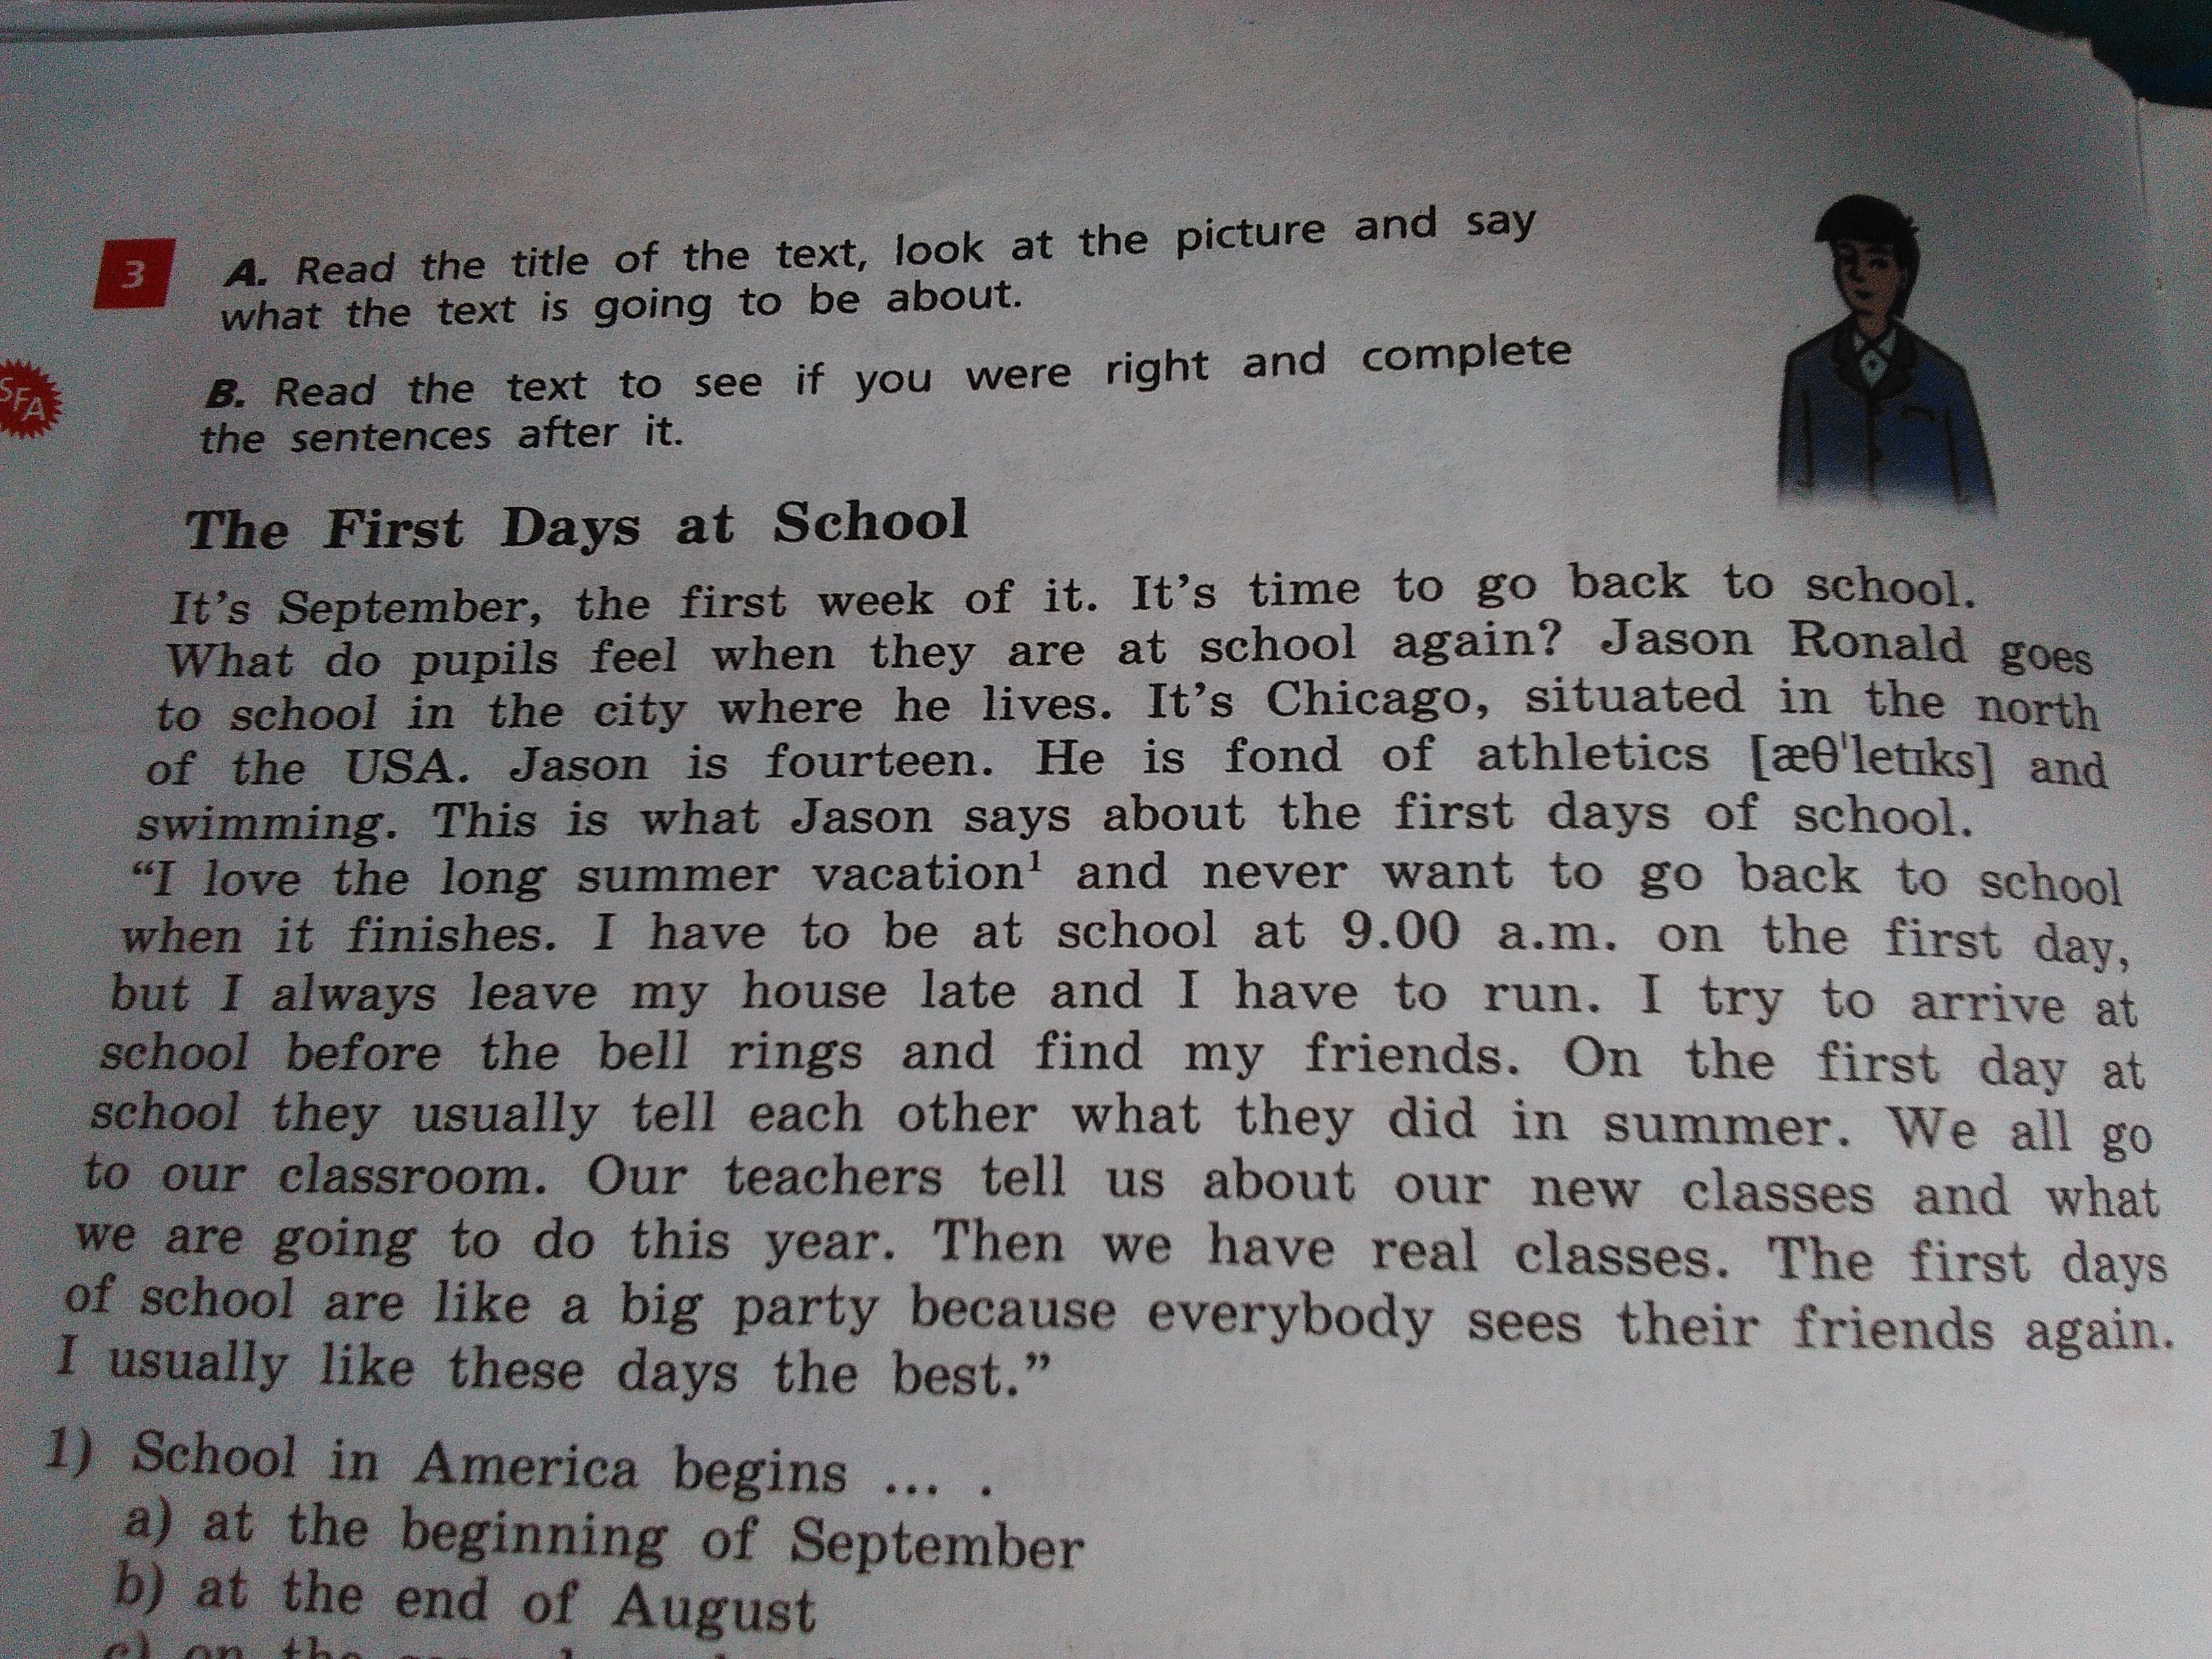 3
A. Read the title of the text, look at the picture and say
what the text is going to be about.
SFA
B. Read the text to see if you were right and complete
the sentences after it.
The First Days at School
It's September, the first week of it. It's time to go back to school.
What do pupils feel when they are at school again? Jason Ronald goes
to school in the city where he lives. It's Chicago, situated in the north
of the USA. Jason is fourteen. He is fond of athletics [æθˈletɪks] and
swimming. This is what Jason says about the first days of school.
“I love the long summer vacation¹ and never want to go back to school
when it finishes. I have to be at school at 9.00 a.m. on the first day,
but I always leave my house late and I have to run. I try to arrive at
school before the bell rings and find my friends. On the first day at
school they usually tell each other what they did in summer. We all go
to our classroom. Our teachers tell us about our new classes and what
we are going to do this year. Then we have real classes. The first days
of school are like a big party because everybody sees their friends again.
I usually like these days the best.”
1) School in America begins ... .
a) at the beginning of September
b) at the end of August
c) on the